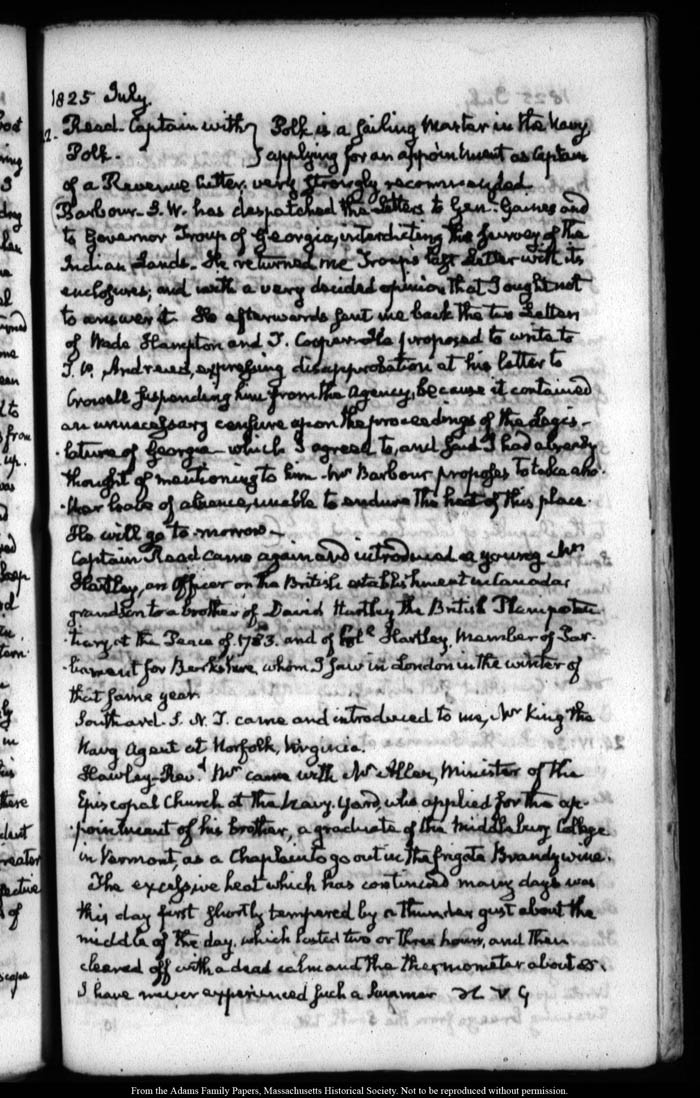 1825 July.
22. Read. Captain with } Polk is a sailing Master in the Navy
Polk. } applying for an appointment as Captain
of a Revenue Cutter. very strongly recommended.
Barbour. S. W. has despatched the Letters to Gen. Gaines and
to Governor Troup of Georgia, interdicting the survey of the
Indian Lands. He returned me Troup's last Letter with its
enclosures; and with a very decided opinion that I ought not
to answer it. He afterwards sent me back the two Letters
of Wade Hampton and T. Cooper. He proposed to write to
T. P. Andrews, expressing disapprobation at his letter to
Crowell suspending him from the Agency, because it contained
an unnecessary censure upon the proceedings of the Legis-
lature of Georgia—which I agreed to, and said I had already
thought of mentioning to him. Mr Barbour proposes to take ano-
ther leave of absence, unable to endure the heat of this place.
He will go to-morrow.
Captain Read came again and introduced a young Mr
Hartley, an Officer on the British establishment in Canada;
grandson to a brother of David Hartley the British Plenipoten-
tiary at the Peace of 1783. and of Coll. Hartley, Member of Par-
liament for Berkshire, whom I saw in London in the winter of
that same year.
Southard. S. N. T. came and introduced to me, Mr King the
Navy Agent at Norfolk, Virginia.
Hawley—Revd. Mr came with Mr Allen, Minister of the
Episcopal Church at the Navy-Yard, who applied for the ap-
pointment of his brother, a graduate of the Middlebury College
in Vermont, as a Chaplain to go out in the frigate Brandywine.
The excessive heat which has continued many days was
this day first shortly tempered by a thunder gust about the
middle of the day, which lasted two or three hours, and then
cleared off with a dead calm and the thermometer about 85.
I have never experienced such a Summer
From the Adams Family Papers, Massachusetts Historical Society. Not to be reproduced without permission.